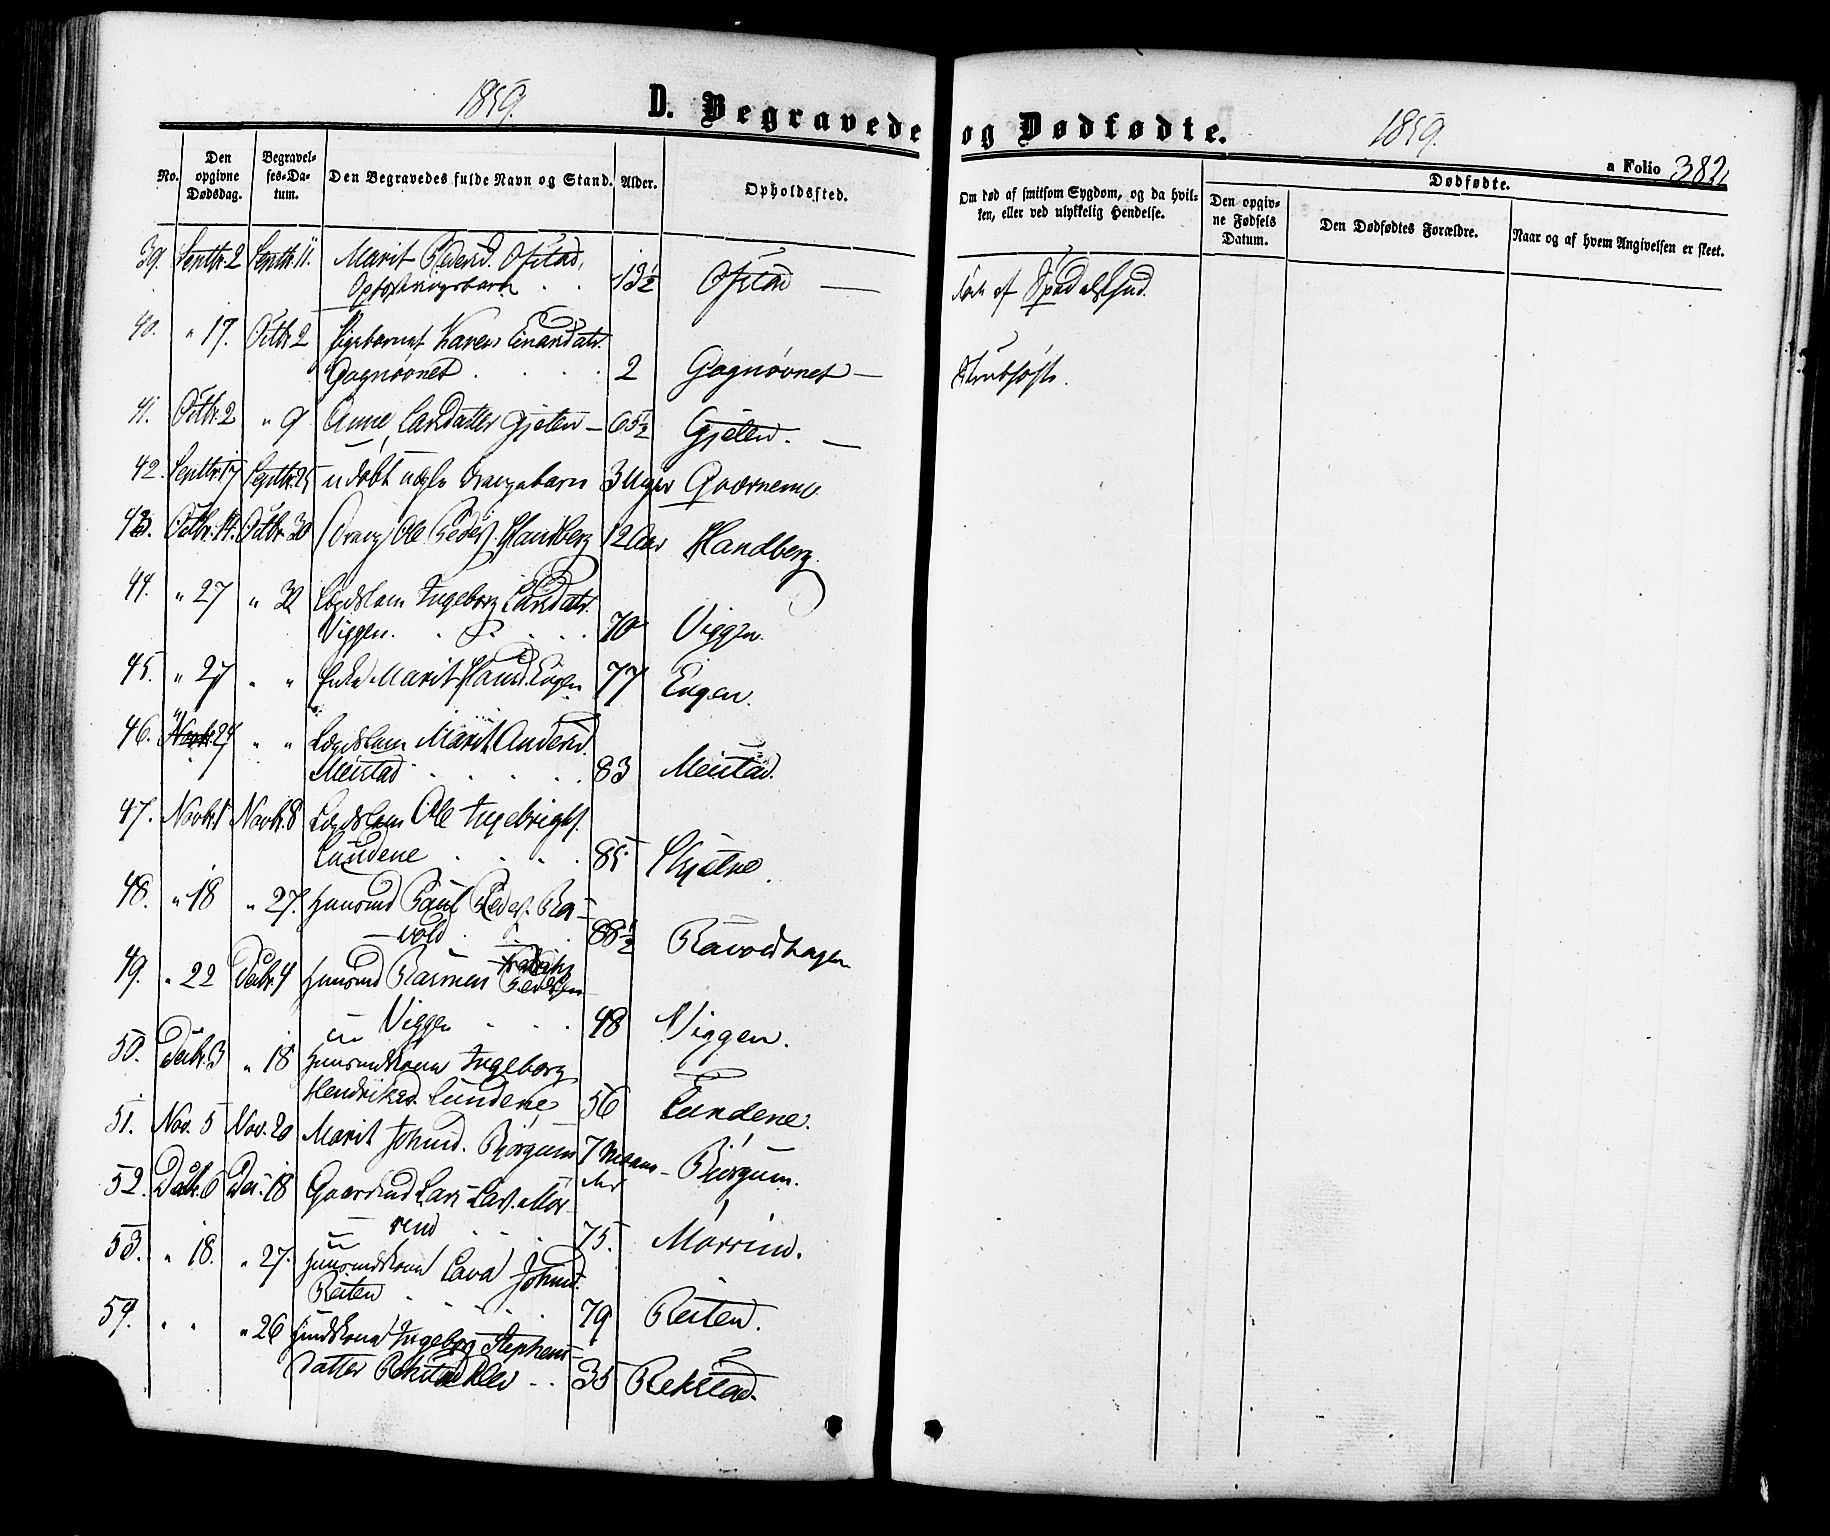 1859.
D. Begravede og Dødfødte.
1859.
a Folio 382,
No.
Den opgivne Dødsdag.
Begravelses-Datum.
Den Begravedes fulde Navn og Stand.
Alder.
Opholdssted.
Om død af smitsom Sygdom, og da hvilken, eller ved ulykkelig Hendelse.
Dødfødte.
Den opgivne Fødsels Datum.
Den Dødfødtes Forældre.
Naar og af hvem Angivelsen er skeet.
39. Septbr. 2 Septbr. 11. Marit Pedersd. Ofstad,
Opfostringsbarn . . 13½ Ofstad — død af Spedalskhed.
40. " 17. Octbr. 2 Pigebarnet Karen Einarsdatr.
Gagnøvnet . . . . 2 Gagnøvnet — Strubehoste.
41. Octbr. 2 " 9 Anne Larsdatter Gjølen — 65½ Gjølen. —
42. Septbr. 17 Septbr. 25 udøbt uægte Drengebarn 3 Uger Qværnemo
43. Octbr. 14. Octbr. 30 Dreng Ole Peders. Handberg 12 Aar Handberg.
44. " 27 " 30 Lægdslem Ingeborg Larsdatr.
Viggen. . . . . 70 Viggen.
45. " 27 " " Enke Marit Hansd. Eugen 77 Eugen.
46. " 24 " " Lægdslem Marit Andersd.
Meistad . . . . 83 Meistad.
47. Novbr. 1 Novbr. 8 Lægdslem Ole Ingebrigts.
Lundene . . . . 85 Skjølne.
48. " 18 " 27. Huusmd Paul Peders. Ra-
vold . . . 88½ Ravoldhagen
49. " 22 Decbr. 4 Huusmd Rasmus Pedersen
Viggen . . . 48 Viggen.
50. Decbr. 3 " 18 Huusmdskone Ingeborg
Hendriksd. Lundene 56 Lundene.
51. Nov. 5 Nov. 20 Marit Johnsd. Bjørgum 7 Maaneder Bjørgum.
52. Decbr. 6 Dec. 18 Gaardmd Lars Lars. Mør-
rend . . . 75. Mørrim.
53. " 18. " 27. Huusmdskone Lava Johnsd.
Reiten . . . . . 79 Reiten.
54. " " " 26 Huusmdskone Ingeborg Stephens-
datter Rekstad . . 35 Rekstad.